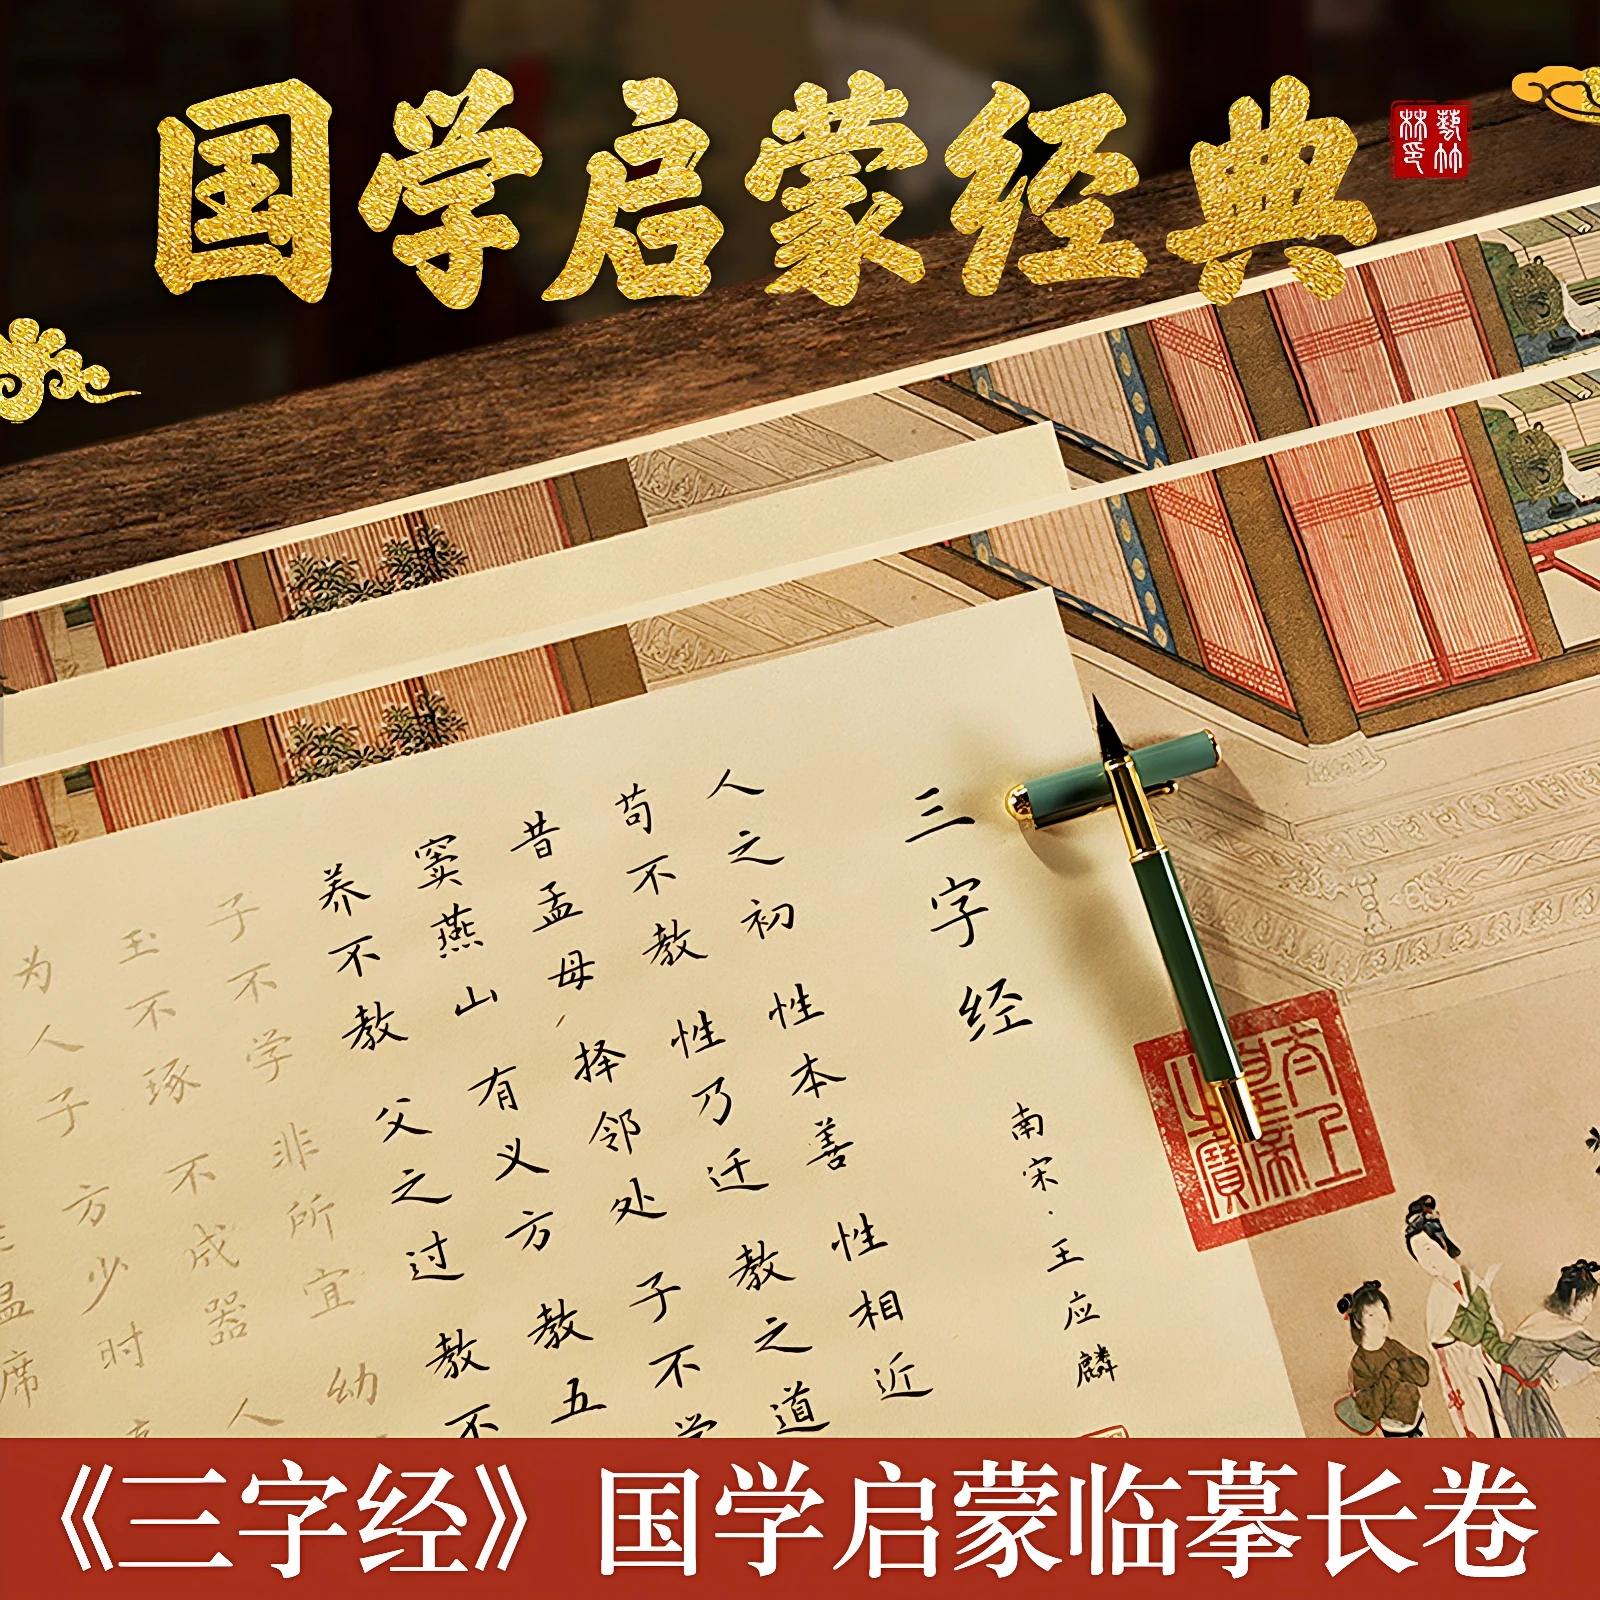 国学启蒙经典
三字经
南宋·王应麟
人之初 性本善 性相近
苟不教 性乃迁 教之道
昔孟母 择邻处 子不学
窦燕山 有义方 教五
养不教 父之过 教不
子不学 非所宜 幼
玉不琢 不成器 人
为人子 方少时
温席
《三字经》国学启蒙临摹长卷